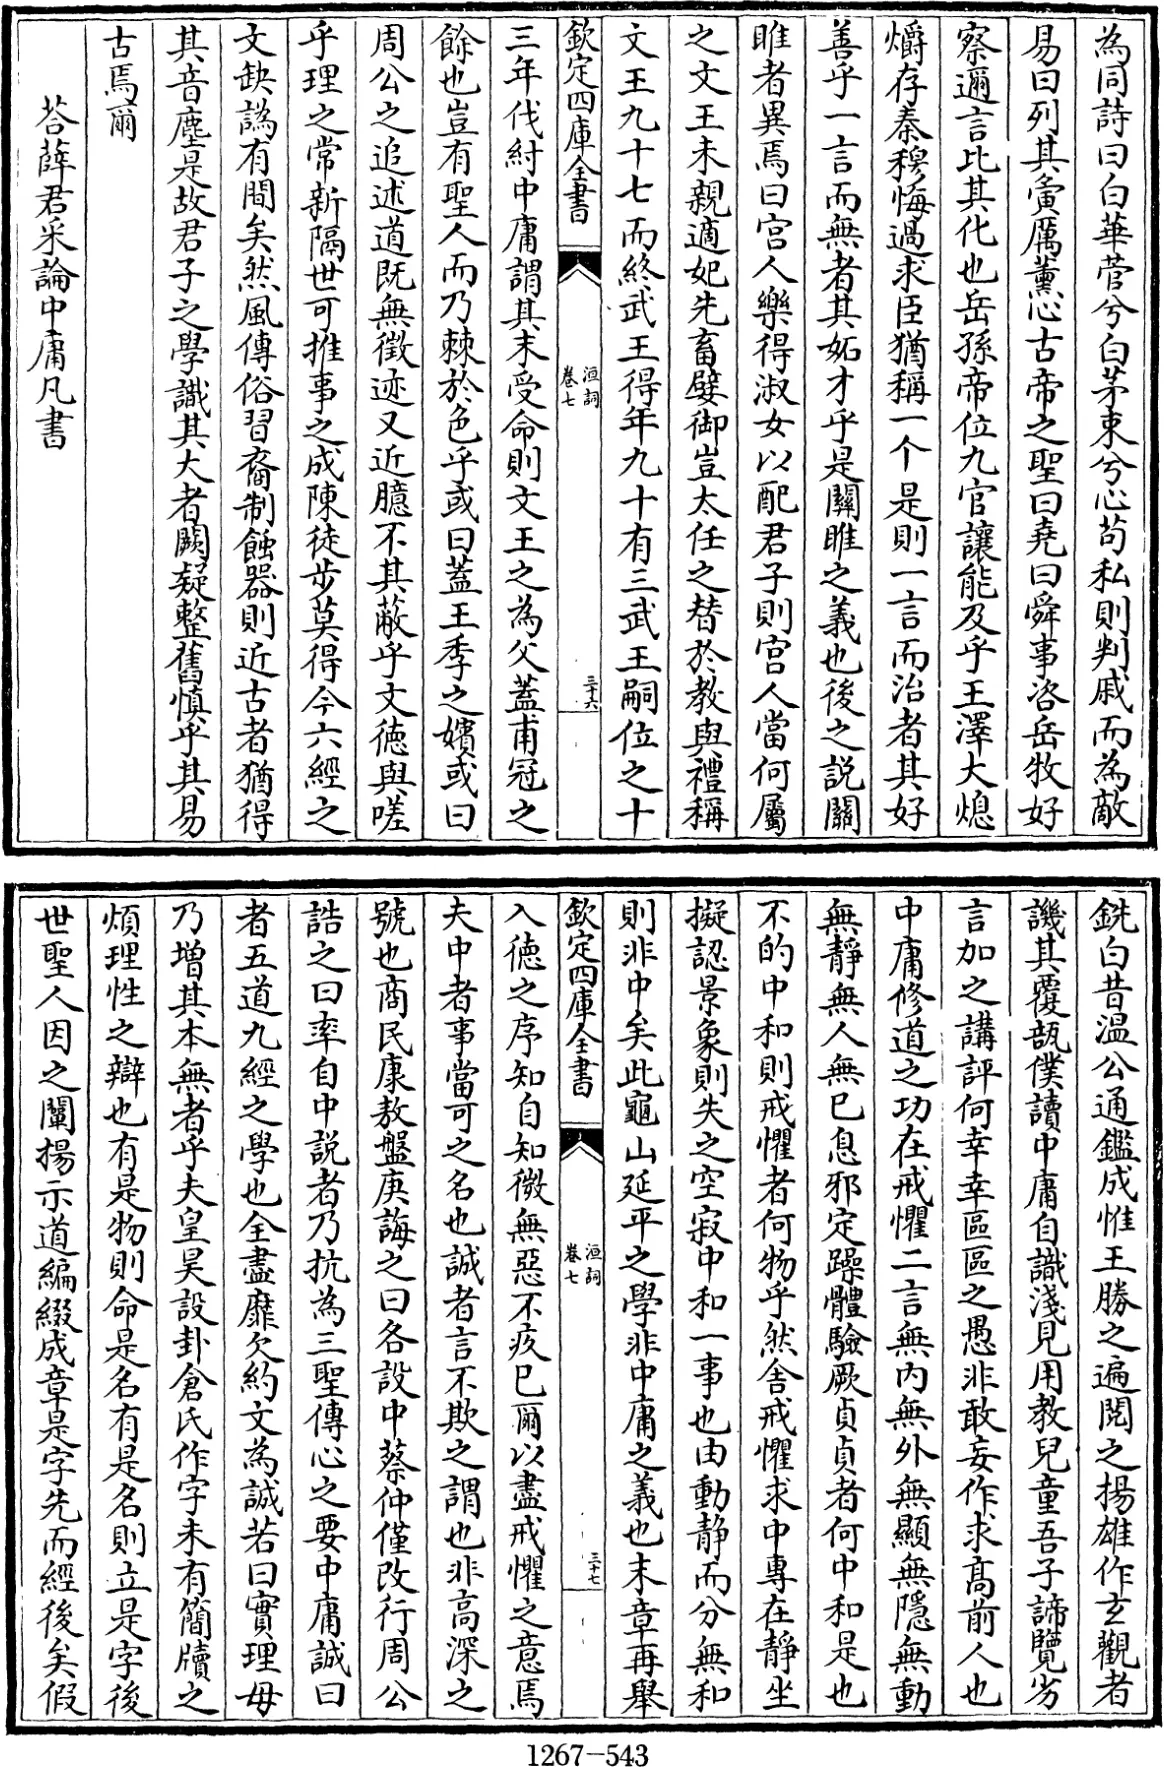 為同詩曰白華菅兮白茅束兮心苟私則判戚而為敵
易曰列其夤厲薰心古帝之聖曰堯曰舜事咨岳牧好
察邇言比其化也岳孫帝位九官讓能及乎王澤大熄
爝存秦穆悔過求臣猶稱一个是則一言而治者其好
善乎一言而無者其妬才乎是關雎之義也後之説關
雎者異焉曰宫人樂得淑女以配君子則宫人當何屬
之文王未親適妃先畜嬖御豈太任之替於教與禮稱
文王九十七而終武王得年九十有三武王嗣位之十
欽定四庫全書
洹詞
卷七
三十六
三年伐紂中庸謂其末受命則文王之為父蓋甫冠之
餘也豈有聖人而乃棘於色乎或曰蓋王季之嬪或曰
周公之追述道既無徵迹又近臆不其蔽乎文德與嗟
乎理之常新隔世可推事之成陳徒步莫得今六經之
文缺譌有間矣然風傳俗習裔制蝕器則近古者猶得
其音塵是故君子之學識其大者闕疑整舊慎乎其易
古焉爾
荅薛君采論中庸凡書
銑白昔温公通鑑成惟王勝之遍閲之揚雄作玄觀者
譏其覆瓿僕讀中庸自識淺見用教兒童吾子諦覽劣
言加之講評何幸幸區區之愚非敢妄作求高前人也
中庸修道之功在戒懼二言無内無外無顯無隱無動
無静無人無已息邪定躁體驗厥貞貞者何中和是也
不的中和則戒懼者何物乎然舍戒懼求中專在静坐
擬認景象則失之空寂中和一事也由動静而分無和
則非中矣此龜山延平之學非中庸之義也末章再舉
欽定四庫全書
洹詞
卷七
三十七
入德之序知自知微無惡不疚已爾以盡戒懼之意焉
夫中者事當可之名也誠者言不欺之謂也非高深之
號也商民康敖盤庚誨之曰各設中蔡仲僅改行周公
誥之曰率自中説者乃抗為三聖傳心之要中庸誠曰
者五道九經之學也全盡靡欠約文為誠若曰實理毋
乃増其本無者乎夫皇昊設卦倉氏作字未有簡牘之
煩理性之辯也有是物則命是名有是名則立是字後
世聖人因之闡揚示道編綴成章是字先而經後矣假
1267-543